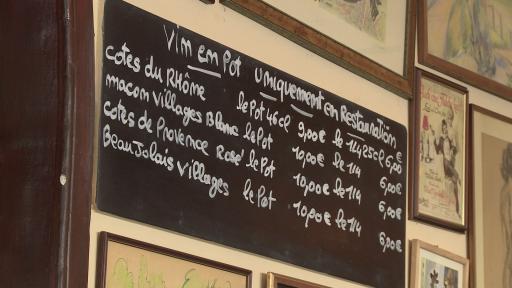 Vin en Pot uniquement en Restauration
Cotes du Rhône le Pot 46cl 9,00€ le 1/4 25cl 6,00€
macom Villages Blanc le Pot 10,00€ le 1/4 6,00€
cotes de Provence Rosé le Pot 10,00€ le 1/4 6,00€
BeauJolais Villages le Pot 10,00€ le 1/4 6,00€